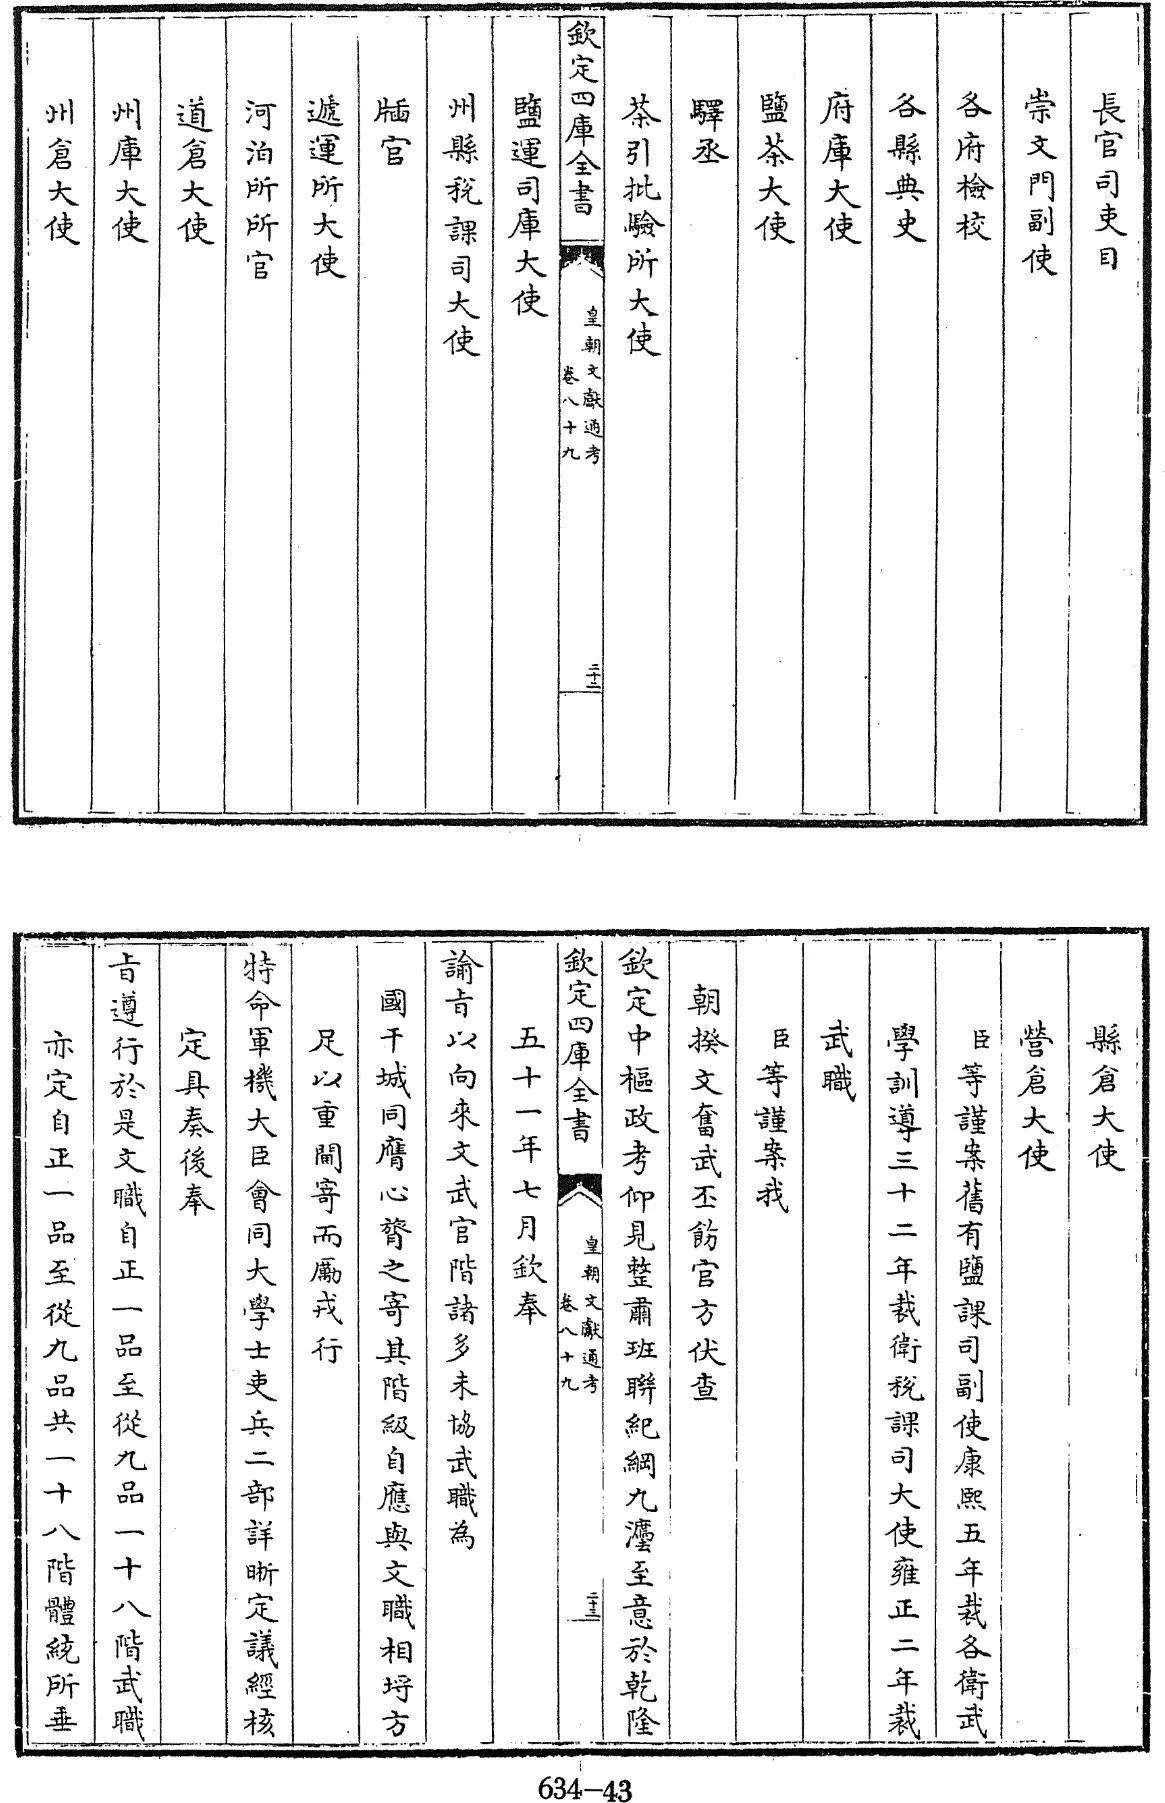 長官司吏目
崇文門副使
各府檢校
各縣典史
府庫大使
鹽茶大使
驛丞
茶引批驗所大使
欽定四庫全書
皇朝文獻通考
卷八十九
二十二
鹽運司庫大使
州縣稅課司大使
牐官
遞運所大使
河泊所所官
道倉大使
州庫大使
州倉大使
縣倉大使
營倉大使
臣等謹案舊有鹽課司副使康熙五年裁各衛武
學訓導三十二年裁衛稅課司大使雍正二年裁
武職
臣等謹案我
朝揆文奮武丕飭官方伏查
欽定中樞政考仰見整肅班聯紀綱九瀍至意於乾隆
欽定四庫全書
皇朝文獻通考
卷八十九
二十三
五十一年七月欽奉
諭旨以向來文武官階諸多未協武職為
國干城同膺心膂之寄其階級自應與文職相埒方
足以重閫寄而勵戎行
特命軍機大臣會同大學士吏兵二部詳晰定議經核
定具奏後奉
旨遵行於是文職自正一品至從九品一十八階武職
亦定自正一品至從九品共一十八階體統所垂
634-43